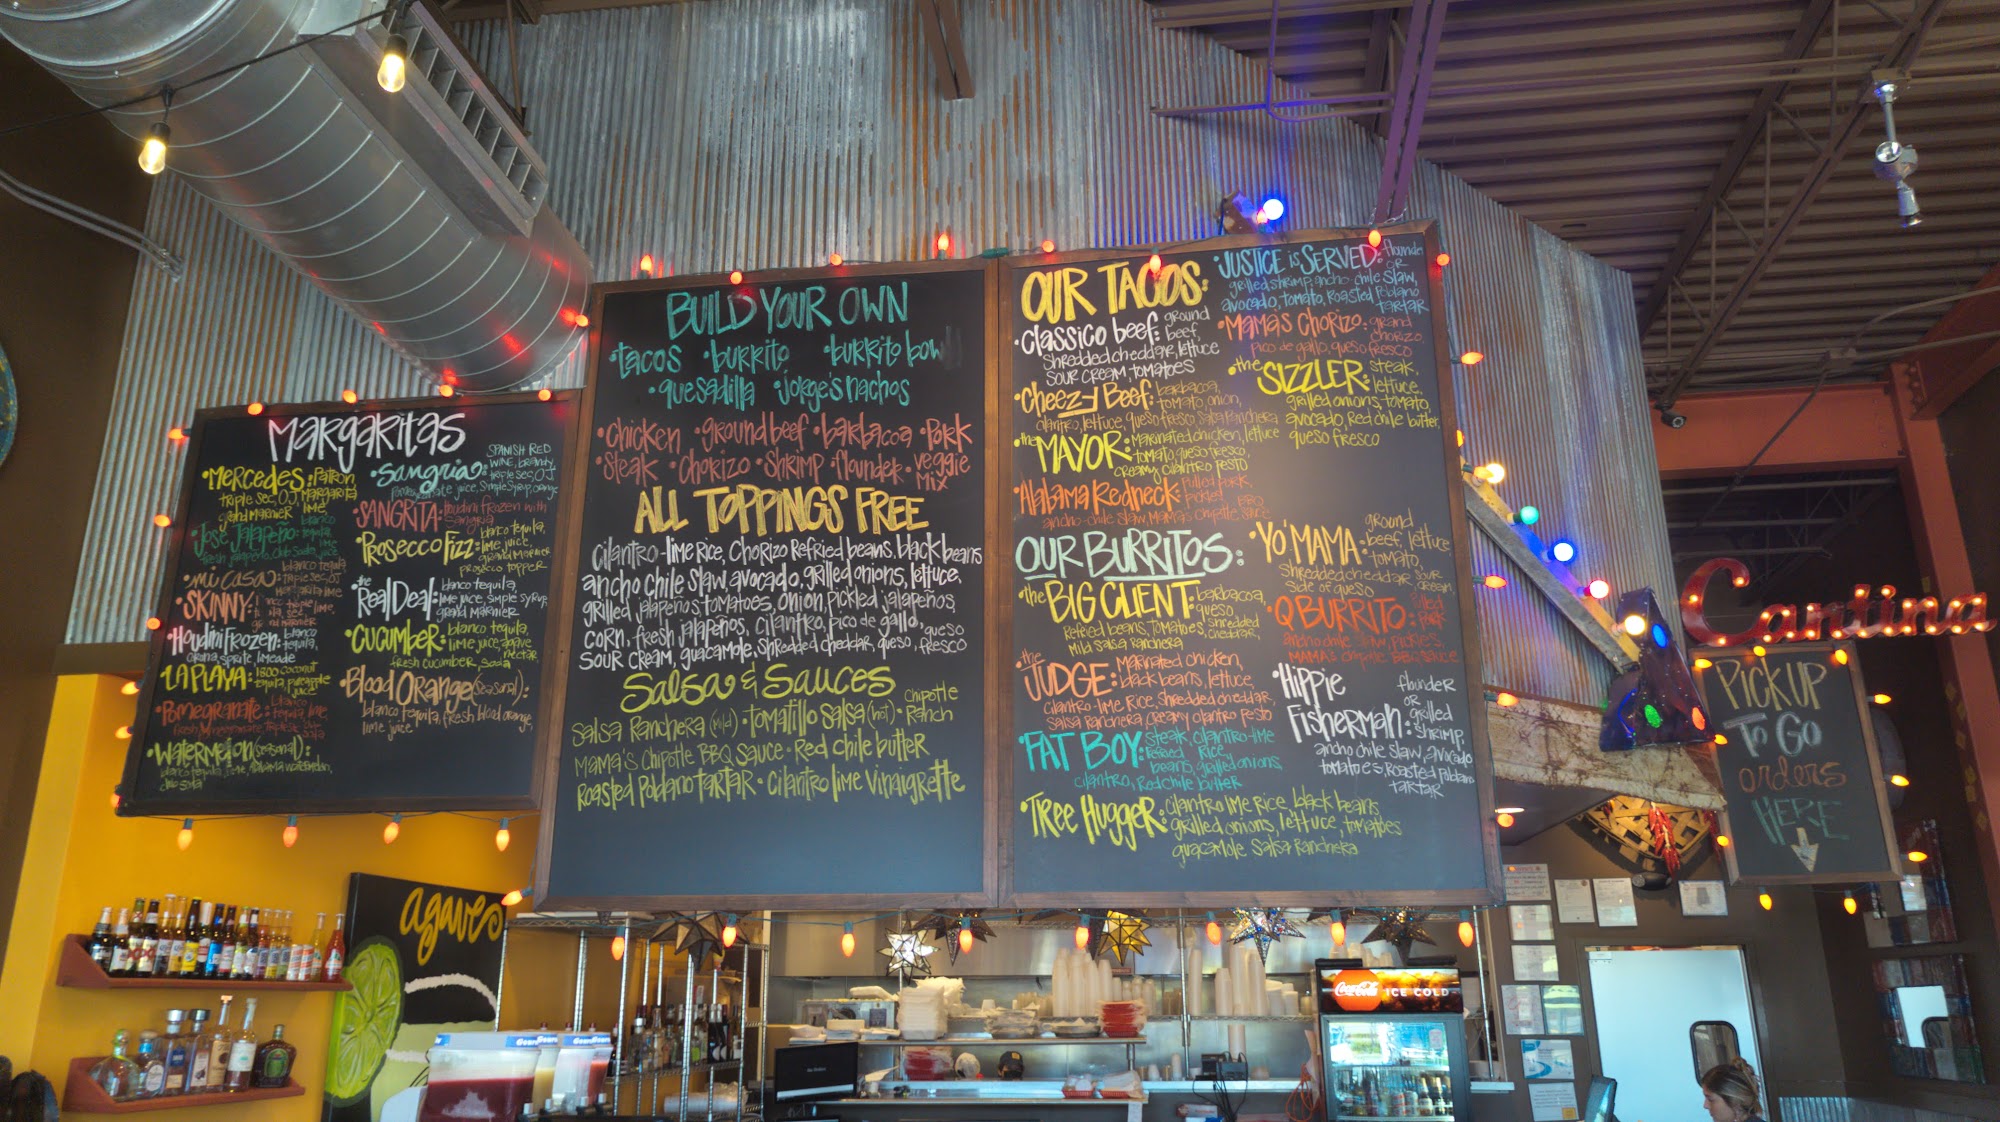 MARGARITAS
•MERCEDES: PATRON
TRIPLE SEC, OJ, MARGARITA
GRAND MARNIER LIME
JOSE JALAPEÑO: blanco
tequila,
fresh jalapeño, club soda, juice
•mi casa: blanco tequila
TRIPLE SEC, OJ
margarita lime
•SKINNY:
triple lime,
grand marnier
Houdini Frozen: blanco
tequila,
corona, sprite, limeade
•LA PLAYA: 1800 coconut
tequila, pineapple
juice
•Pomegranate: blanco
tequila, lime,
•WATERMELON (seasonal):
blanco tequila, lime,
club soda
•Sangria: SPANISH RED
WINE, brandy,
triple sec, OJ
pomegranate juice, simple syrup, orange
•SANGRITA: Houdini frozen with
Sangria
•PROSECCO FIZZ: blanco tequila,
lime juice,
grand marnier
prosecco topper
•the Real Deal: blanco tequila,
lime juice, simple syrup,
grand marnier
•CUCUMBER: blanco tequila,
lime juice, agave
nectar
fresh cucumber, soda
•Blood Orange (seasonal):
blanco tequila, fresh blood orange,
lime juice
BUILD YOUR OWN
•tacos •burrito •burrito bow
•quesadilla •jorge's nachos
•chicken •ground beef •barbacoa •PORK
•Steak •Chorizo •Shrimp •flounder •veggie
MIX
ALL TOPPINGS FREE
cilantro-lime rice, chorizo refried beans, black beans
ancho chile slaw, avocado, grilled onions, lettuce,
grilled jalapeños, tomatoes, onion, pickled jalapeños,
corn, fresh jalapeños, cilantro, pico de gallo, queso
sour cream, guacamole, shredded cheddar, queso, fresco
Salsa & Sauces
Salsa Ranchera (mild) • tomatillo salsa (hot) • Chipotle
Ranch
Mama's Chipotle BBQ Sauce • Red chile butter
Roasted Poblano tartar • Cilantro lime vinaigrette
OUR TACOS:
•Classico beef: ground
beef,
shredded cheddar, lettuce
sour cream, tomatoes
•Cheezy Beef: barbacoa,
tomato, onion,
cilantro, lettuce, queso fresco salsa ranchera
•the MAYOR: Marinated chicken, lettuce
tomato, queso fresco,
creamy cilantro pesto
•Alabama Redneck: pulled pork,
pickled BBQ
ancho-chile slaw, Mama's chipotle sauce
•JUSTICE is SERVED: flounder
OR
grilled shrimp, ancho chile slaw,
avocado, tomato, Roasted Poblano
tartar
•Mama's Chorizo: grand
chorizo,
pico de gallo, queso fresco
•the SIZZLER: steak,
lettuce,
grilled onions, tomato,
avocado, red chile butter,
queso fresco
OUR BURRITOS:
•the BIG CLIENT: barbacoa,
queso,
refried beans, tomatoes, shredded
cheddar,
mild salsa ranchera
•the JUDGE: Marinated chicken,
black beans, lettuce,
cilantro-lime rice, shredded cheddar,
salsa ranchera creamy cilantro pesto
•FAT BOY: steak, cilantro-lime
refried rice,
beans, grilled onions,
cilantro, red chile butter
•TREE HUGGER: cilantro lime rice, black beans
grilled onions, lettuce, tomatoes
guacamole salsa ranchera
•YO' MAMA: ground
beef, lettuce
tomato,
shredded cheddar sour
cream,
side of queso
•Q BURRITO: pulled
pork
ancho chile slaw, pickles,
MAMA's chipotle BBQ sauce
•Hippie
Fisherman: flounder
OR
grilled
shrimp,
ancho chile slaw, avocado
tomatoes, Roasted Poblano
tartar
Cantina
PICK UP
TO GO
orders
HERE
agave
Coca-Cola ICE COLD